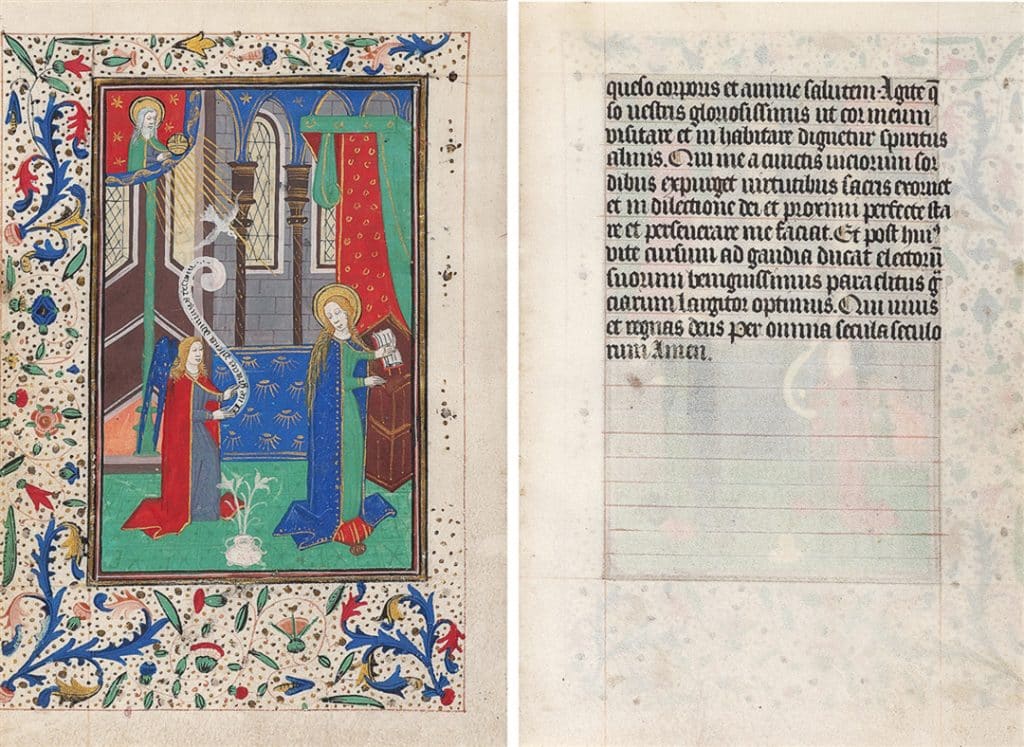 queso corporis et anime salutem. Agite q̄
so vestris gloriosissimis ut cor meum
visitare et in habitare dignetur spiritus
almus. Qui me a cunctis viciorum sor
dibus expurget virtutibus sacris exornet
et in dilectione dei et proximi perfecte sta
re et perseverare me faciat. Et post huiꝰ
vite cursum ad gaudia ducat electorū
suorum benignissimus paraclitus gͣ
ciarum largitor optimus. Qui vivis
et regnas deus Per omnia secula seculo
rum Amen.